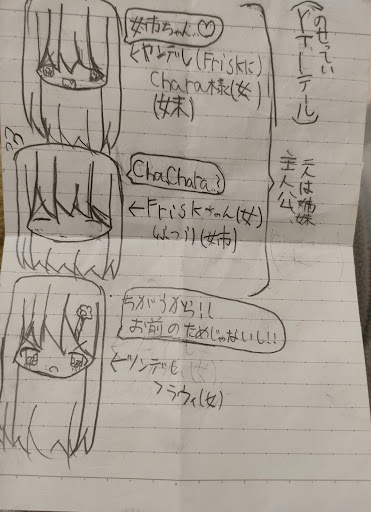 のせってい
(Yアーテル)
二人は姉妹
主人公
姉ちゃん…♡
←ヤンデレ(Friskに)
Chara様(女)
(妹)
ChaChara…?
←Friskちゃん(女)
ふつう(姉)
ちがうから!!
お前のためじゃないし!!
←ツンデレ
フラウィ(女)